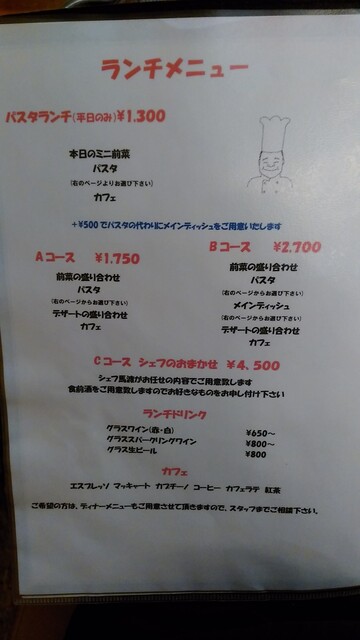 ランチメニュー
パスタランチ(平日のみ)¥1.300
本日のミニ前菜
パスタ
(右のページよりお選び下さい)
カフェ
+¥500でパスタの代わりにメインディッシュをご用意いたします
Aコース ¥1.750
前菜の盛り合わせ
パスタ
(右のページからお選び下さい)
デザートの盛り合わせ
カフェ
Bコース ¥2.700
前菜の盛り合わせ
パスタ
(右のページからお選び下さい)
メインディッシュ
(右のページからお選び下さい)
デザートの盛り合わせ
カフェ
Cコース シェフのおまかせ ¥4,500
シェフ馬渡がお任せの内容でご用意致します
食前酒をご用意致しますのでお好きなものをお申し付け下さい
ランチドリンク
グラスワイン(赤・白) ¥650~
グラススパークリングワイン ¥800~
グラス生ビール ¥800
カフェ
エスプレッソ マッキャート カプチーノ コーヒー カフェラテ 紅茶
ご希望の方は、ディナーメニューもご用意させて頂きますので、スタッフまでご相談下さい。